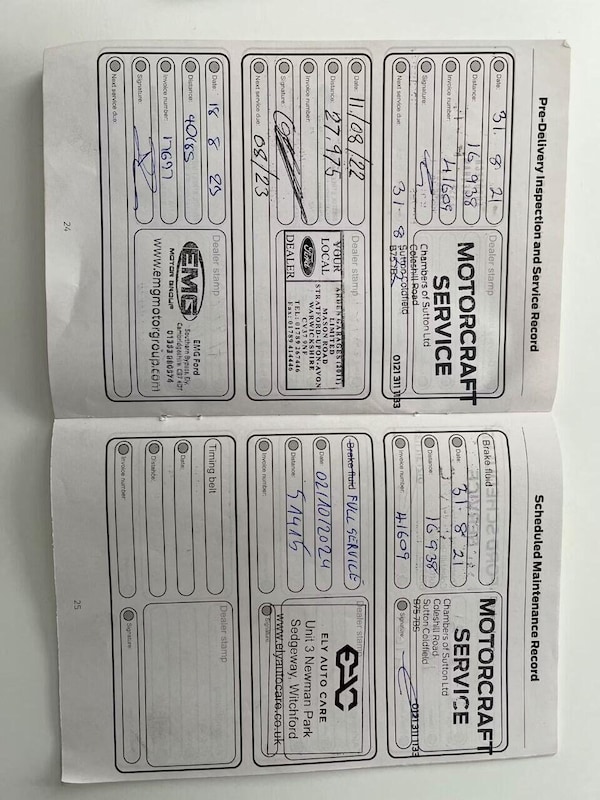 Pre-Delivery Inspection and Service Record
Date: 31. 8. 21
Distance: 16938
Invoice number: 41609
Signature:
Next service due: 31. 8
Dealer stamp
MOTORCRAFT
SERVICE
Chambers of Sutton Ltd
Coleshill Road
Sutton Coldfield
B75 7BS
0121 311 1133
Date: 11/08/22
Distance: 27,975
Invoice number:
Signature:
Next service due: 08/23
Dealer stamp
YOUR
LOCAL
Ford
DEALER
ARDEN GARAGES (2011)
LIMITED
MASON ROAD
STRATFORD-UPON-AVON
WARWICKSHIRE
CV37 9NF
TEL: 01789 267446
Fax: 01789 414446
Date: 18 8 23
Distance: 40185
Invoice number: 17697
Signature:
Next service due:
Dealer stamp
EMG
MOTOR GROUP
EMG Ford
Southern Bypass, Ely
Cambridgeshire
www.emgmotorgroup.com
24
Scheduled Maintenance Record
Brake fluid
Date: 31. 8. 21
Distance: 16938
Invoice number: 41609
Dealer stamp
MOTORCRAFT
SERVICE
Chambers of Sutton Ltd
Coleshill Road
Sutton Coldfield
B75 7BS
0121 311 1133
Signature:
Brake fluid FULL SERVICE
Date: 02/10/2024
Distance: 51415
Invoice number:
Dealer stamp
EAC
ELY AUTO CARE
Unit 3 Newman Park
Sedgeway, Witchford
www.elyautocare.co.uk
Signature:
Timing belt
Date:
Distance:
Invoice number:
Dealer stamp
Signature:
25